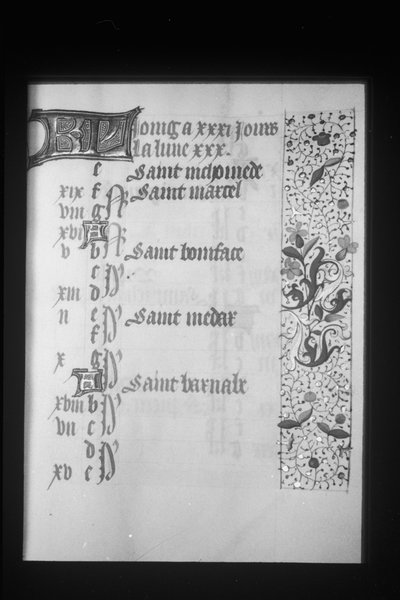 KL Ioing a xxxi jours
La lune xxx.
e Saint nichomede
xix f N' Saint marcel
viii g
xvi A N'
v b Saint boniface
c
xiii d
ii e Saint medar
f
x g
A Saint barnabe
xviii b
vii c
d
xv e